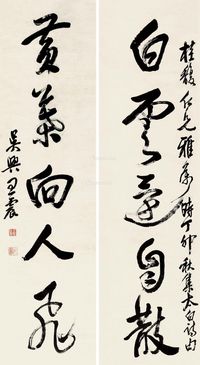 桂馥仁兄雅屬 時丁卯秋集太白詩句
白雲還自散
黃葉向人飛
吳興王震